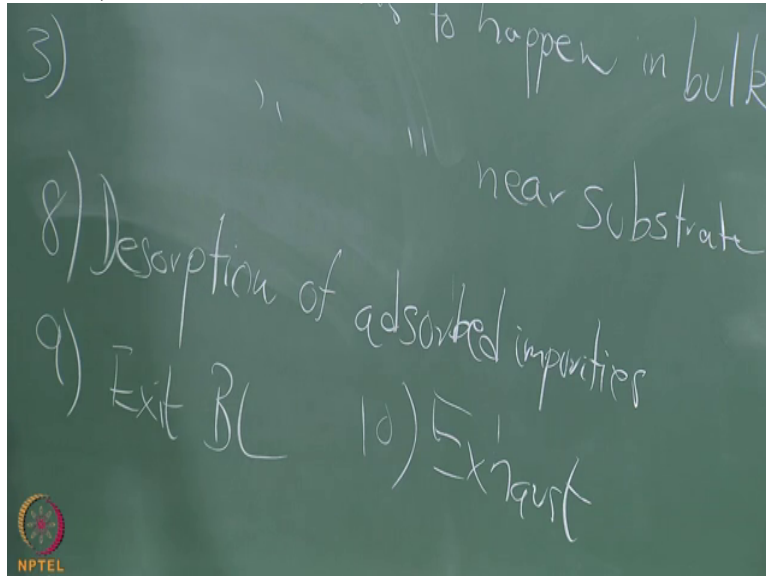 to happen in bulk
3) " " near substrate
8) Desorption of adsorbed impurities
9) Exit BL 10) Exhaust
NPTEL